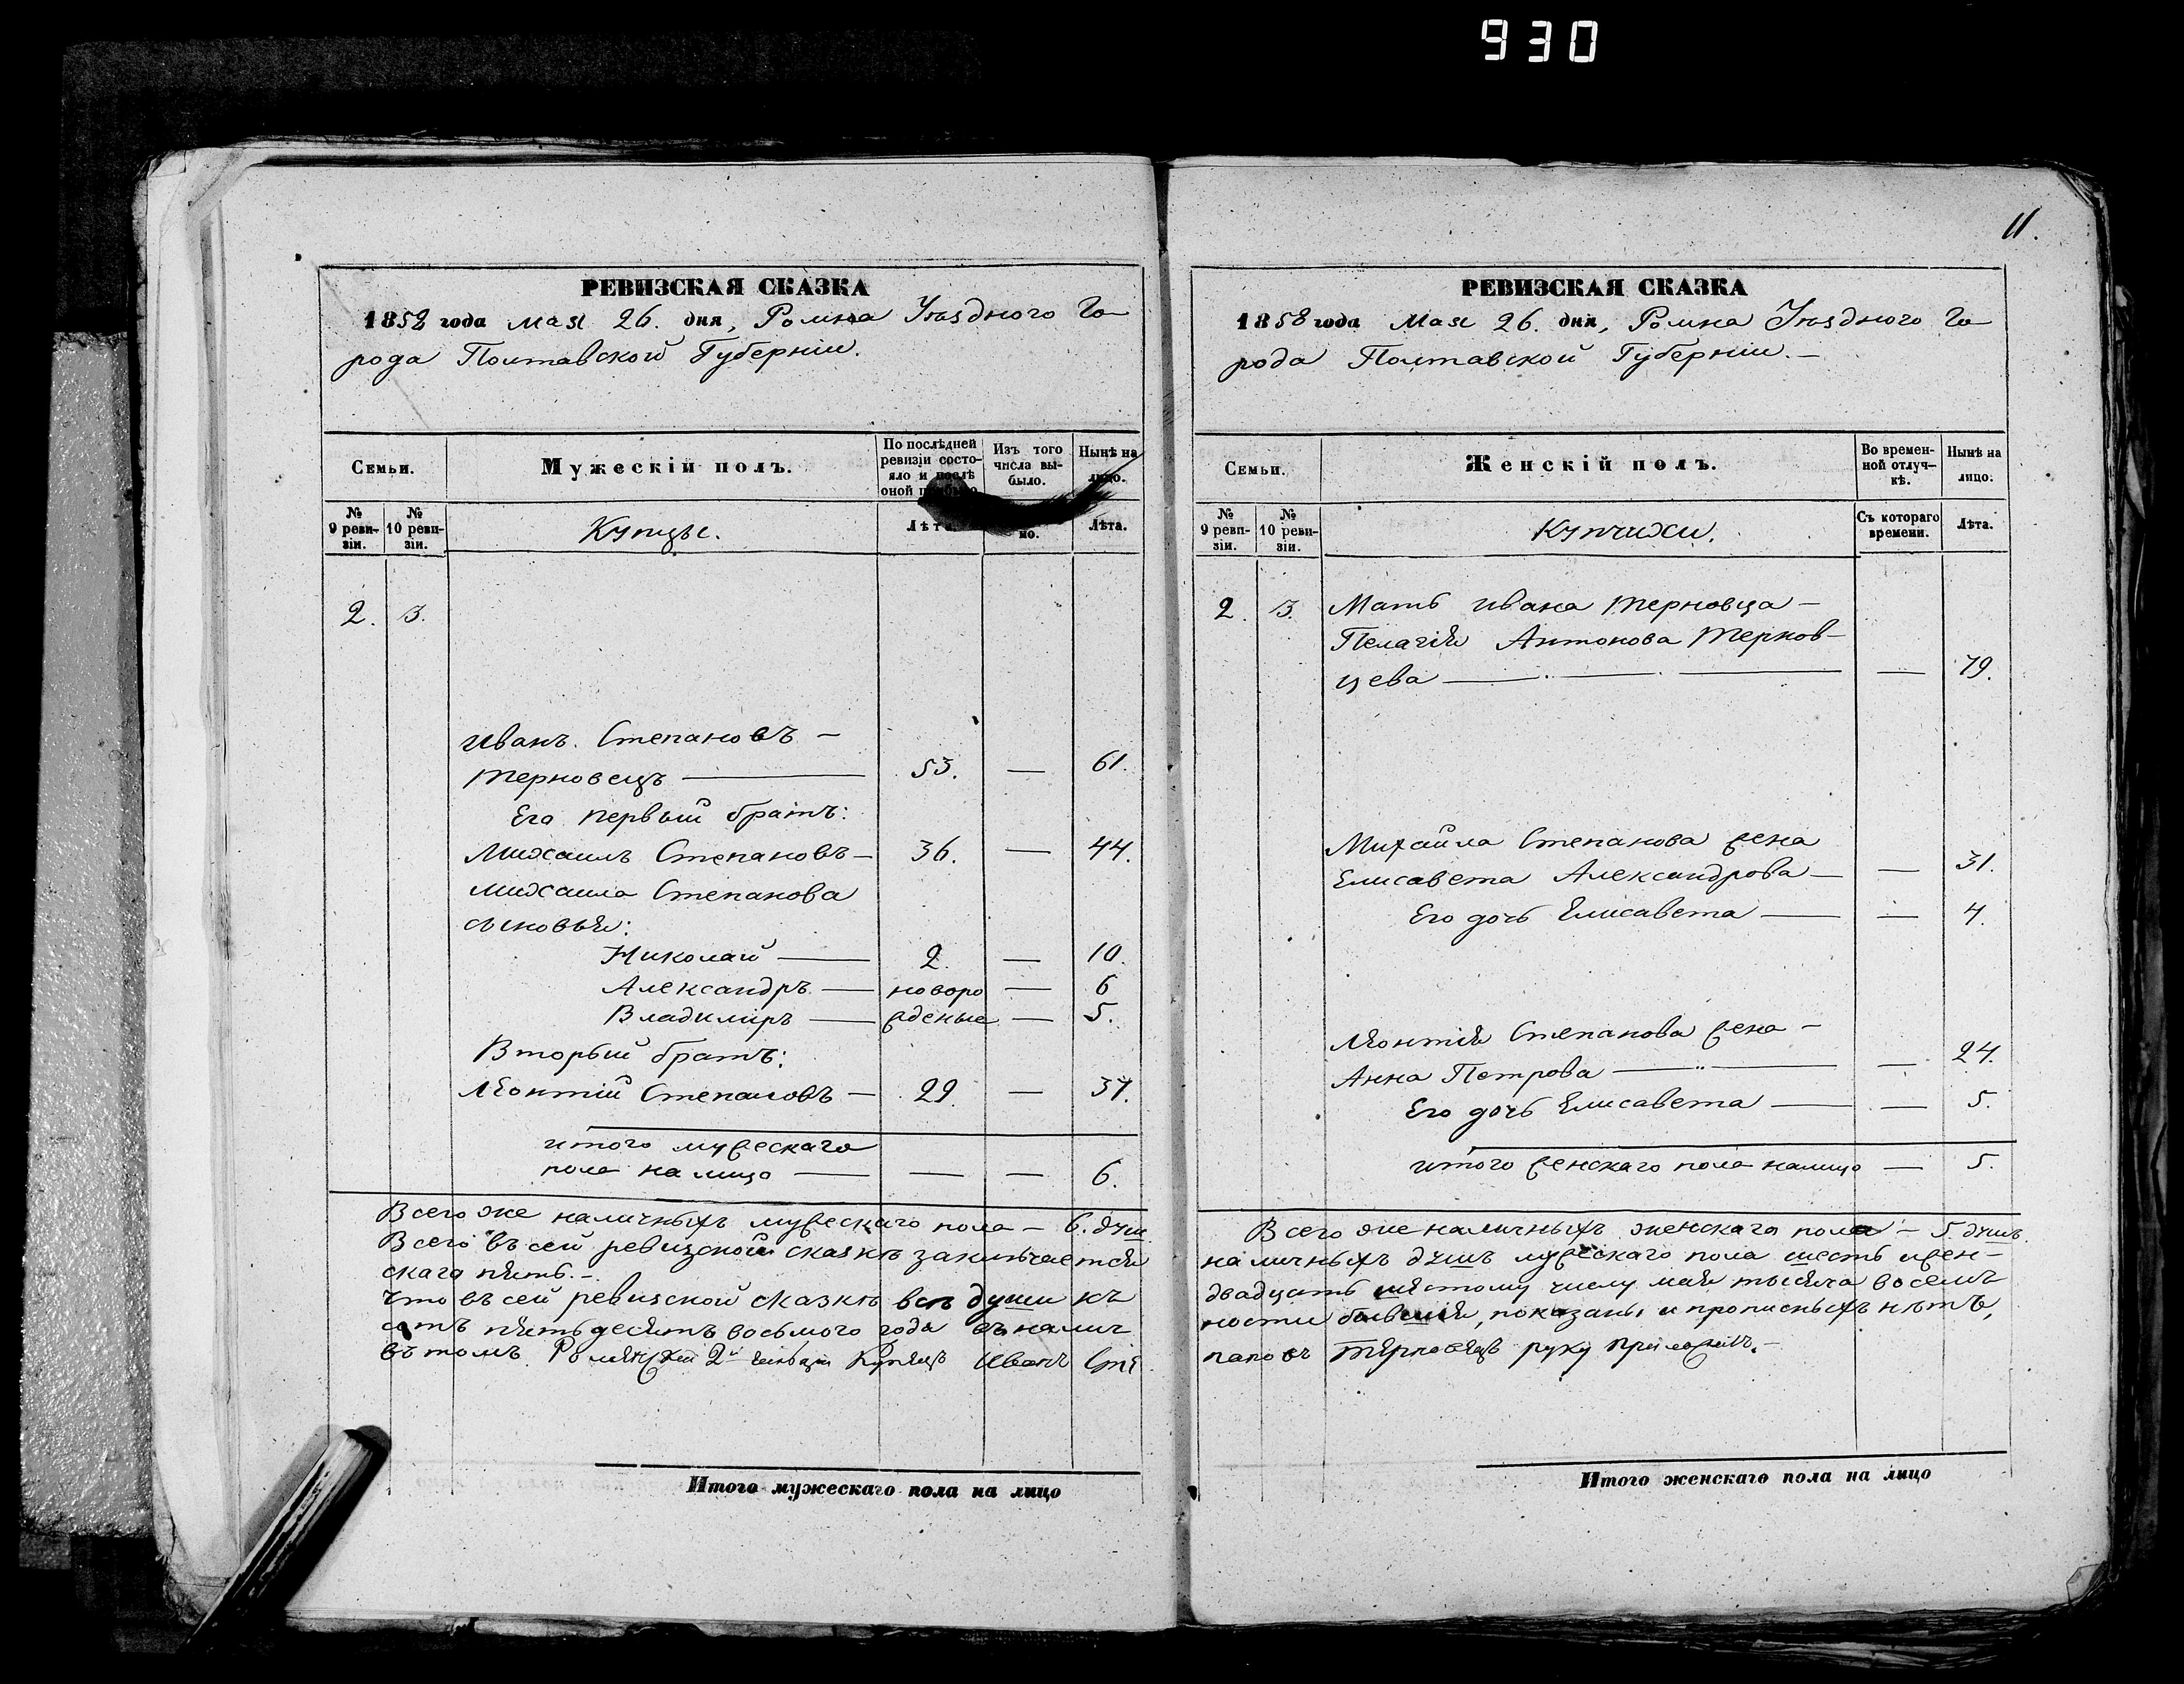 930
11.
РЕВИЗСКАЯ СКАЗКА
1858 года мая 26. дня, Ромна Уѣзднаго Го-
рода Полтавской Губерніи.
Семьи.
Мужескій полъ.
По послѣдней
ревизіи состо-
яло и послѣ
оной
Изъ того
числа вы-
было.
Нынѣ на
лицо.
№
9 реви-
зіи.
№
10 реви-
зіи.
Купцы.
Лѣта.
но.
Лѣта.
2. 3.
Иванъ Степановъ -
Терновецъ — 53. — 61.
Его первый братъ:
Михаилъ Степановъ — 36. — 44.
Михаила Степанова
сыновья:
Николай — 2. — 10.
Александръ — новоро — 6
Владимиръ — жденые — 5.
Вторый братъ:
Леонтій Степановъ — 29. — 37.
итого мужескаго
пола на лицо — — — 6.
Всего же наличныхъ мужескаго пола — 6. душ.
Всего въ сей ревизской сказкѣ заключается
скаго пять.-
Что въ сей ревизской сказкѣ всѣ души къ
сотъ пятьдесятъ восьмого года въ налич
въ томъ Роменскій 2й гильдіи Купецъ Иванъ Сте
Итого мужескаго пола на лицо
РЕВИЗСКАЯ СКАЗКА
1858 года Мая 26. дня, Ромна Уѣзднаго Го-
рода Полтавской Губерніи.-
Семьи.
Женскій полъ.
Во времен-
ной отлуч-
кѣ.
Нынѣ на
лицо.
№
9 реви-
зіи.
№
10 реви-
зіи.
Купчихи.
Съ котораго
времени.
Лѣта.
2. 3. Мать Ивана Терновца -
Пелагія Антонова Тернов-
цева — — — 79.
Михайла Степанова жена
Елисавета Александрова — — 31.
Его дочь Елисавета — — 4.
Леонтія Степанова жена -
Анна Петрова — — 24.
Его дочь Елисавета — — 5.
итого женскаго пола налицо — 5.
Всего же наличныхъ женскаго пола — 5. душъ.
наличныхъ душъ мужескаго пола шесть и жен-
двадцать шестому числу мая тысяча восемъ
ности бывшія, показаны и прописныхъ нѣтъ,
пановъ Терновецъ руку приложилъ.-
Итого женскаго пола на лицо